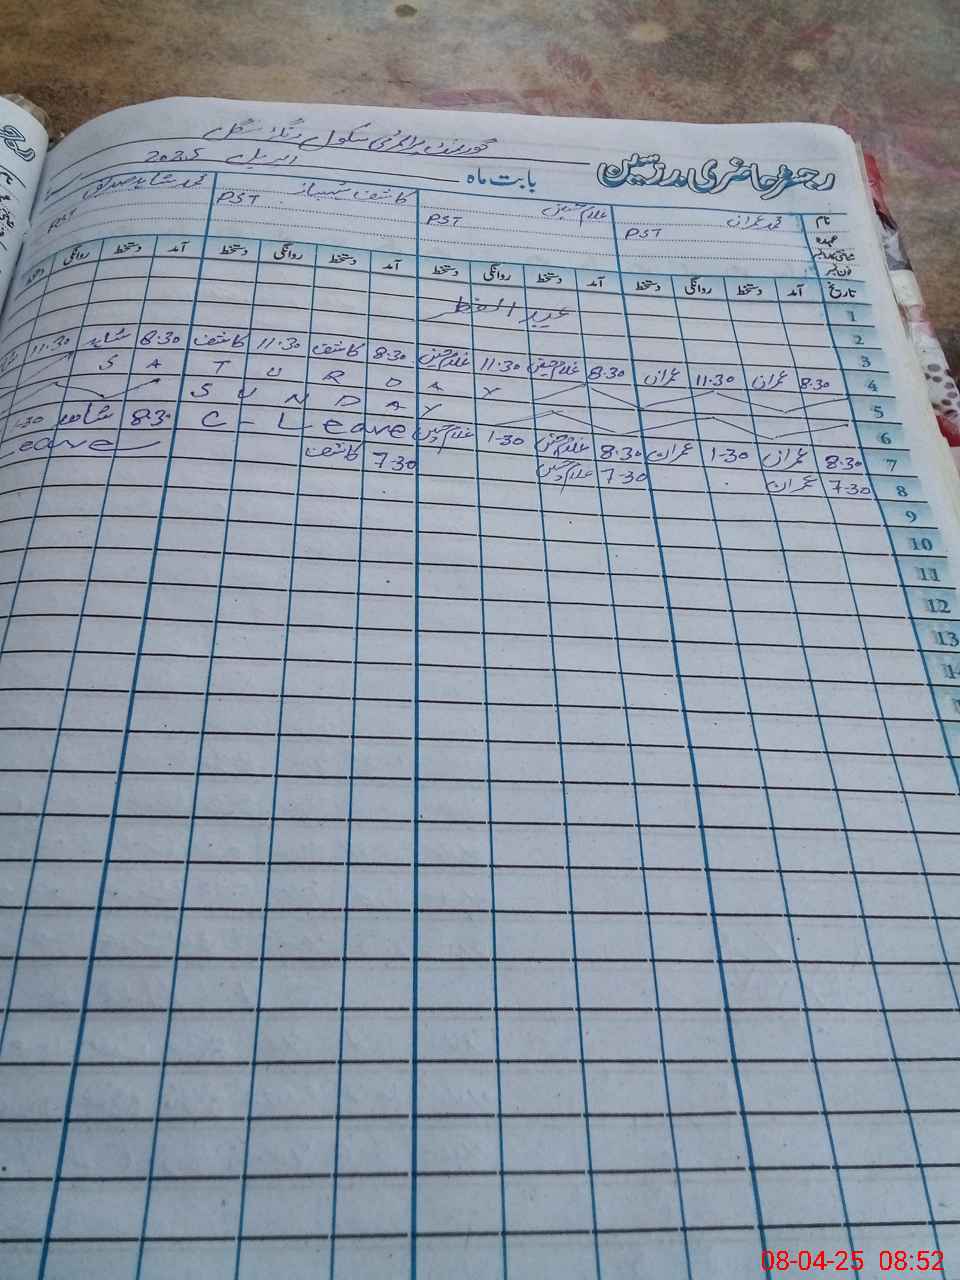 رجسٹر حاضری مدرسین
بابت ماہ اپریل 2025 گورنمنٹ پرائمری سکول
نام محمد عمران غلام حسین کاشف شہباز محمد شاہد
عہدہ PST PST PST PST
فون نمبر
تاریخ آمد دستخط روانگی دستخط آمد دستخط روانگی دستخط آمد دستخط روانگی دستخط آمد دستخط روانگی دستخط
1
2 عید الفطر
3
4 8:30 عمران 11:30 عمران 8:30 غلام حسین 11:30 غلام حسین 8:30 کاشف 11:30 کاشف 8:30 شاہد 11:30
5 SATURDAY
6 SUNDAY
7 8:30 عمران 1-30 عمران 8:30 غلام حسین 1-30 غلام حسین C-Leave 8:30 شاہد 1-30
8 7-30 عمران 7-30 غلام حسین 7-30 کاشف eave
9
10
11
12
13
14
08-04-25 08:52